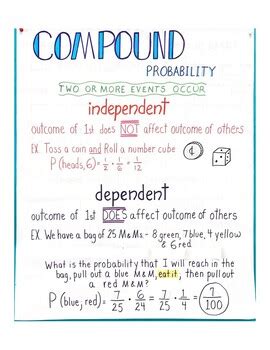 COMPOUND
PROBABILITY
TWO OR MORE EVENTS OCCUR
independent
outcome of 1st does NOT affect outcome of others
EX. Toss a coin and Roll a number cube
P (heads, 6) = 1/2 · 1/6 = 1/12
dependent
outcome of 1st DOES affect outcome of others
EX. We have a bag of 25 M&Ms - 8 green, 7 blue, 4 yellow
& 6 red
What is the probability that I will reach in the
bag, pull out a blue M&M, eat it, then pull out
a red M&M?
P (blue, red) = 7/25 · 6/24 = 7/25 · 1/4 = 7/100